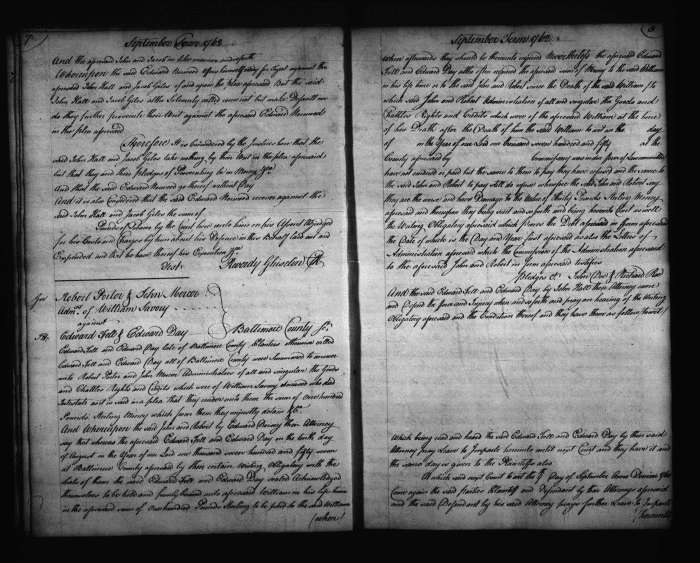 7
September Term 1762
And the aforesaid John and Jacob in like manner
Whereupon the said Edward Norwood offers himself ready for tryal against the
aforesaid John Hall and Jacob Giles of and upon the plea aforesaid But the said
John Hall and Jacob Giles altho Solemnly called come not but make Default nor
do they further prosecute their Writ against the aforesaid Edward Norwood
in the plea aforesaid
Therefore It is considered by the Justices here that the
said John Hall and Jacob Giles take nothing by their Writ in the plea aforesaid
but that they and their pledges of Prosecuting be in Mercy &c
And that the said Edward Norwood go thereof without Day
And it is also Considered that the said Edward Norwood recover against the
said John Hall and Jacob Giles the sum of
Pounds of Tobacco by the Court here unto him on his Assent Adjudged
for his Costs and Charges by him about his Defence in this Behalf laid out and
Expended and that he have thereof his Execution &c
Test Reverdy Ghiselin Clk
Robert Porter & John Mercer
Adm.rs of William Savory
against
Edward Fell & Edward Day
Baltimore County sc.
Edward Fell and Edward Day late of Baltimore County Planters otherwise called
Edward Fell and Edward Day all of Baltimore County were Summoned to answer
unto Robert Porter and John Mercer Administrators of all and singular the Goods
and Chattles Rights and Credits which were of William Savory deceased who died
Intestate as it is said in a plea that they render unto them the sum of One hundred
Pounds Sterling Money which from them they unjustly detain &c
And Whereupon the said John and Robert by Edward Dorsey their Attorney
say that whereas the aforesaid Edward Fell and Edward Day on the tenth day
of August in the Year of our Lord one thousand seven hundred and fifty seven
at Baltimore County aforesaid by their certain Writing Obligatory with the
Seals of them the said Edward Fell and Edward Day sealed Acknowledged
themselves to be held and firmly bound unto aforesaid William in his life time
in the aforesaid sum of One hundred Pounds Sterling to be paid to the said William
(when)
September Term 1762
when afterwards they should be thereunto required Nevertheless the aforesaid Edward
Fell and Edward Day altho often required the aforesaid sum of Money to the said William
in his life time or to the said John and Robert since the Death of the said William (to
which said John and Robert Administration of all and singular the Goods and
Chattles Rights and Credits which were of the aforesaid William at the time
of his Death after the Death of him the said William to wit on the day
of in the Year of our Lord one thousand seven hundred and fifty at the
County aforesaid by Commissary
have not rendered or paid but the same to them to pay they have refused and the same to
the said John and Robert to pay still do refuse whereupon the said John and Robert say
they are the worse and have Damage to the Value of thirty Pounds Sterling Money
aforesaid and thereupon they bring suit and so forth and bring here into Court as well
the Writing Obligatory aforesaid which proves the Debt aforesaid in form aforesaid
the Date of which is the Day and Year first aforesaid as also the Letters of
Administration aforesaid which the Commission of the Administration aforesaid
to the aforesaid John and Robert in form aforesaid testifies
Pledges &c John Doe & Richard Roe
And the said Edward Fell and Edward Day by John Hall their Attorney come
and Defend the force and Injury when and so forth and pray an hearing of the Writing
Obligatory aforesaid and the Condition thereof and they have them as follow towit
Which being read and heard the said Edward Fell and Edward Day by their said
Attorney pray Leave to Imparle hereunto until next Court and they have it and
the same day is given to the Plaintiffs also
At which said next Court to wit the Day of September Anno Domini
Came again the said Parties Plaintiff and Defendant by their Attorneys aforesaid
and the said Defendant by his said Attorney prays further Leave to Imparle
(hereunto